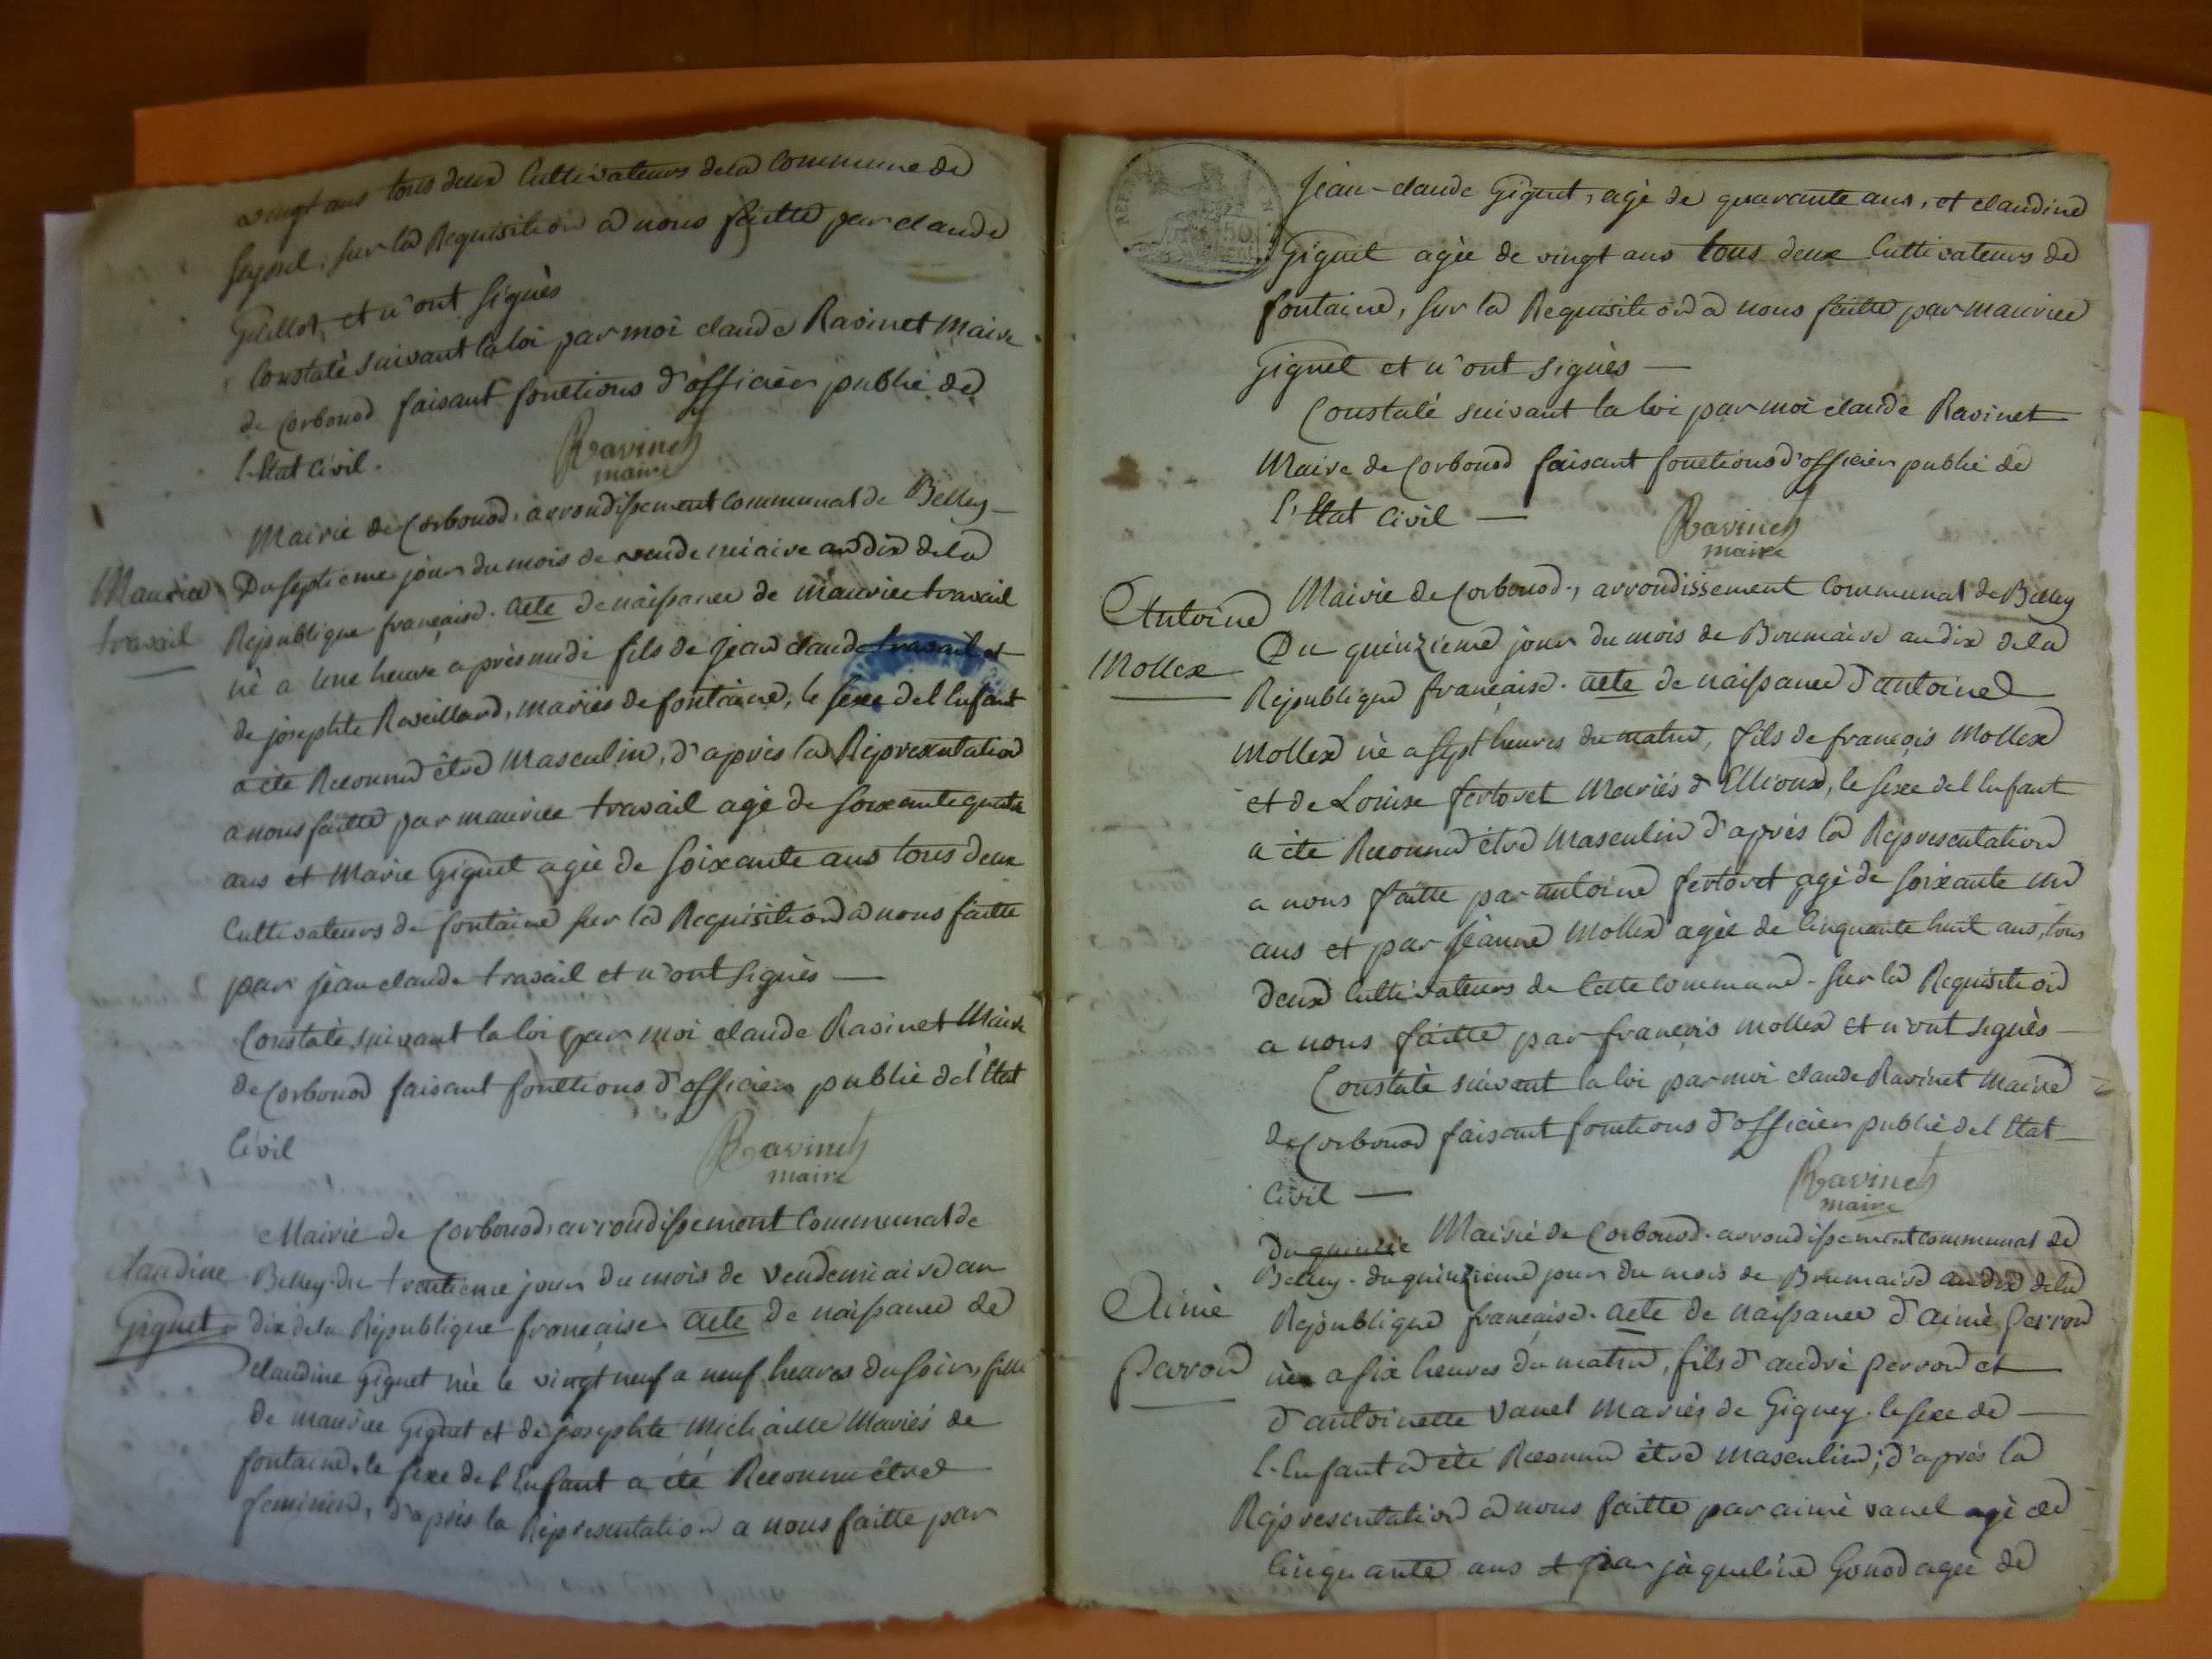 vingt ans tous deux Cultivateurs dela Commune de
seyssel, sur la Requisition a nous faitte par claude
Guillot, et n'ont signès
Constatè suivant la loi par moi claude Ravinet Maire
de Corbonod faisant fonctions d'officier publié de
l'Etat Civil.
Ravinet
maire
Mairie de Corbonod, arrondissement Communal de Belley
Maurice
travail
Du septieme jour du mois de vendemiaire an dix dela
Republique française. acte de naissance de maurice travail
nè a une heure après midi fils de jean claude travail et
de josephte Raveillard, mariés de fontaine, le sexe de l'Enfant
a ète Reconnu être Masculin, d'après la Représentation
a nous faitte par maurice travail agè de soixante quatre
ans et Marie Giguet agèe de soixante ans tous deux
Cultivateurs de fontaine sur la Requisition a nous faitte
par jèan claude travail et n'ont signès
Constatè suivant la loi par moi claude Ravinet Maire
de Corbonod faisant fonctions d'officier publié de l'Etat
Civil
Ravinet
maire
Mairie de Corbonod, arrondissement Communal de
claudine
Giguet
Belley. du trentieme jour du mois de vendemiaire an
dix dela Republique française. acte de naissance de
claudine Giguet nèe le vingt neuf a neuf heures du soir, fille
de maurice Giguet et de josephte Michaille Mariés de
fontaine, le sexe de l'Enfant a été Reconnu être
feminin, d'après la Représentation a nous faitte par
Jean-claude Giguet, agè de quarante ans, et claudine
Giguet agèe de vingt ans tous deux Cultivateurs de
fontaine, sur la Requisition a nous faitte par maurice
Giguet et n'ont signès
Constatè suivant la loi par moi claude Ravinet
Maire de Corbonod faisant fonctions d'officier publié de
l'Etat Civil
Ravinet
maire
Mairie de Corbonod, arrondissement Communal de Belley
Antoine
Mollex
Du quinzieme jour du mois de Brumaire an dix dela
Republique française. acte de naissance d'antoine
Mollex nè a sept heures du matin, fils de françois Mollex
et de Louise fertoret Mariés d'Ellioux, le sexe de l'Enfant
a ète Reconnu être Masculin d'après la Représentation
a nous faitte par antoine fertoret agè de soixante un
ans et par Jeanne Mollex agèe de Cinquante huit ans, tous
deux Cultivateurs de Cette Commune. sur la Requisition
a nous faitte par françois mollex et n'ont signès
Constatè suivant la loi par moi claude Ravinet Maire
de Corbonod faisant fonctions d'officier publié de l'Etat
Civil
Ravinet
maire
Du quinzie Mairie de Corbonod. arrondissement communal de
Belley. du quinzieme jour du mois de Brumaire an dix dela
Aimè
Parron
Republique française. acte de naissance d'aimè perron
nè a six heures du matin, fils d'andrè perron et
d'antoinette vanel mariés de Gigney. le sexe de
l'Enfant a ète Reconnu être masculin; d'après la
Représentation a nous faitte par aimè vanel agè de
Cinquante ans et par jaqueline Gonod agèe de